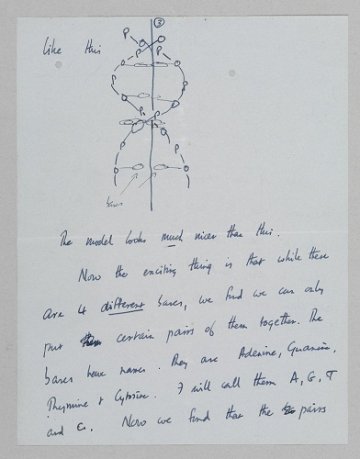 ③
Like this
P P
P P
P P
P P
bases
The model looks much nicer than this.
Now the exciting thing is that while there
are 4 different bases, we find we can only
put certain pairs of them together. The
bases have names. They are Adenine, Guanine,
Thymine & Cytosine. I will call them A, G, T
and C. Now we find that the pairs